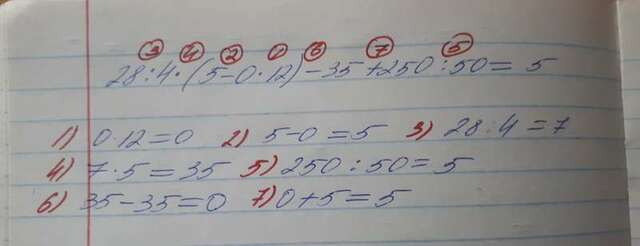 3 4 2 1 6 7 5
28:4·(5-0·12)-35+250:50= 5
1) 0·12=0 2) 5-0=5 3) 28:4=7
4) 7·5=35 5) 250:50=5
6) 35-35=0 7) 0+5=5